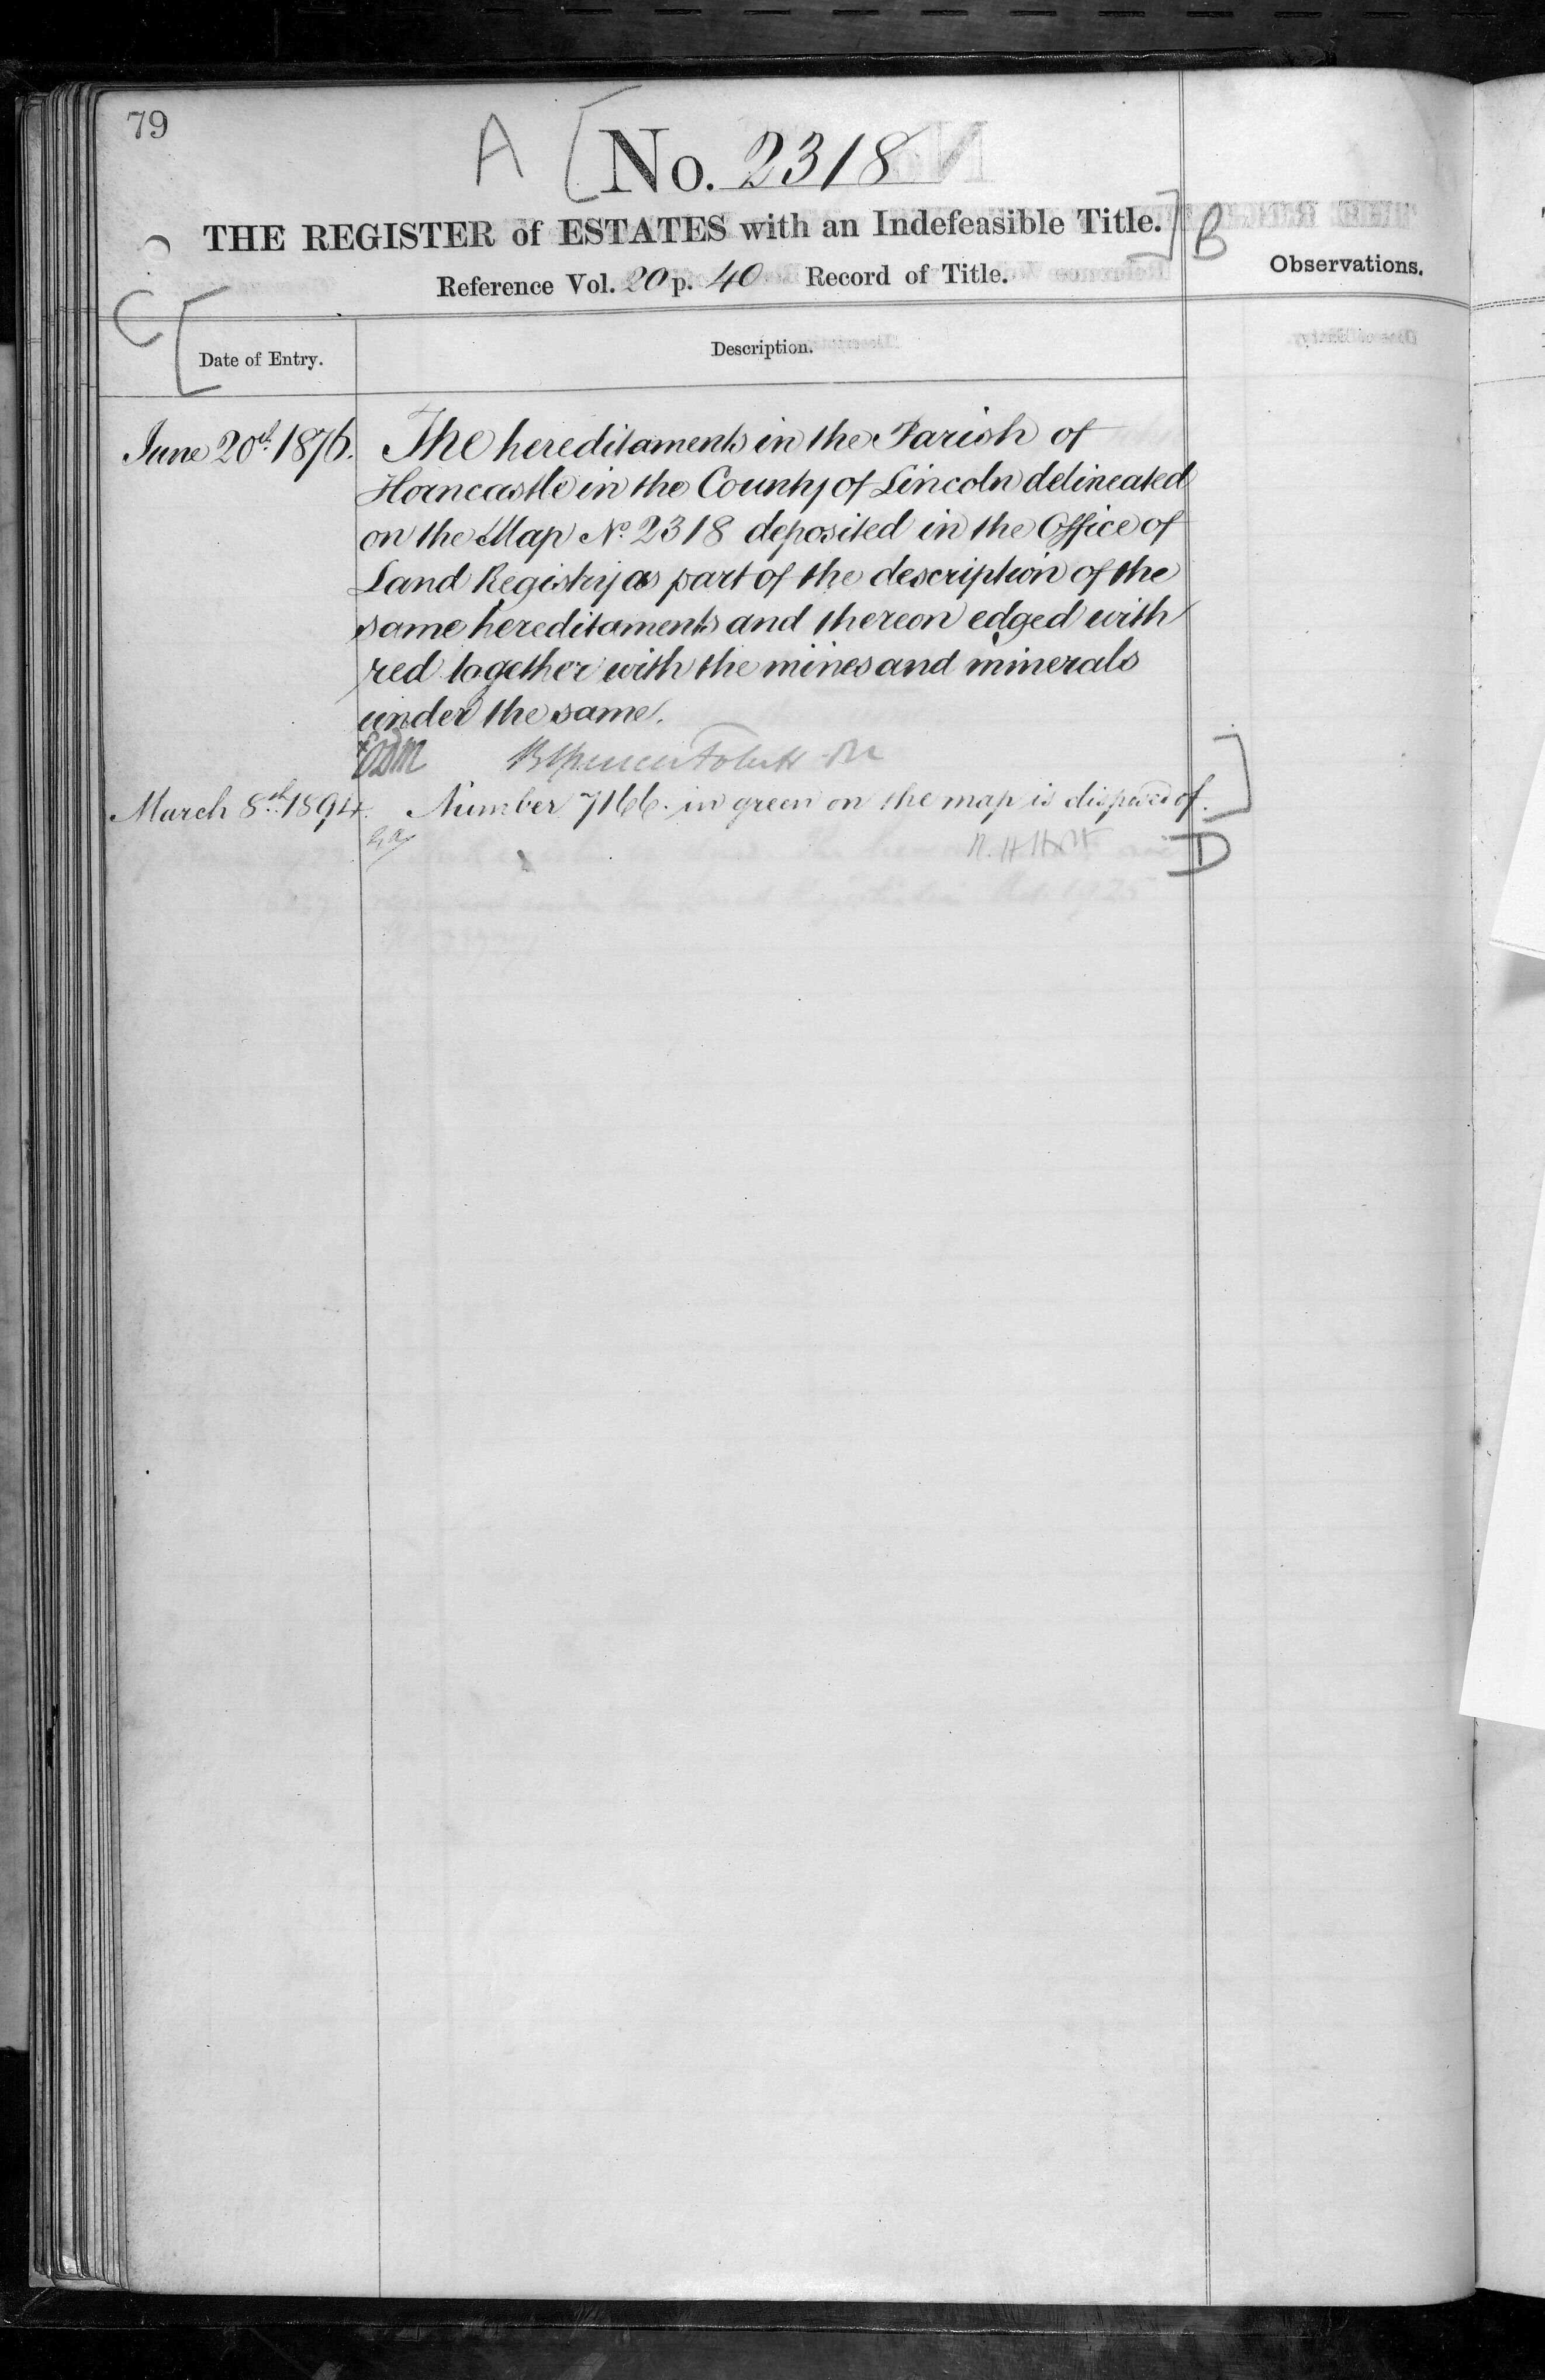 79
A [ No. 2318
THE REGISTER of ESTATES with an Indefeasible Title. ] B
Reference Vol. 20 p. 40 Record of Title.
Observations.
C [
Date of Entry.
Description.
June 20th 1876. The hereditaments in the Parish of
Horncastle in the County of Lincoln delineated
on the Map No. 2318 deposited in the Office of
Land Registry as part of the description of the
same hereditaments and thereon edged with
red together with the mines and minerals
under the same.
]
March 8th 1894. Number 7166. in green on the map is disposed of.
R. H. Holt
D